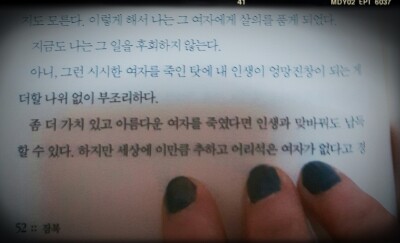 41
MDY02 EPT 6037
지도 모른다. 이렇게 해서 나는 그 여자에게 살의를 품게 되었다.
지금도 나는 그 일을 후회하지 않는다.
아니, 그런 시시한 여자를 죽인 탓에 내 인생이 엉망진창이 되는 게
더할 나위 없이 부조리하다.
좀 더 가치 있고 아름다운 여자를 죽였다면 인생과 맞바꿔도 납득
할 수 있다. 하지만 세상에 이만큼 추하고 어리석은 여자가 없다고
52 :: 잘목